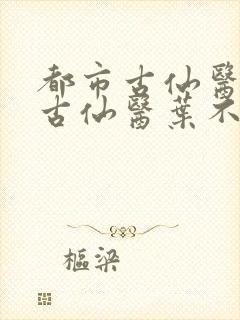 都市古仙醫
古仙醫葉不
樞梁